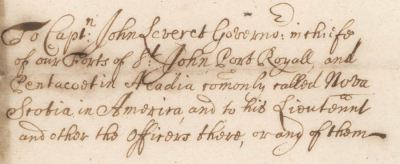 To Captn. John Leveret Governor: in chiife
of our Forts of St. John Port Royall, and
Pentacoet in Acadia comonly called Nova
Scotia, in America, and to his Lieutennt
and other the Officers there, or any of them